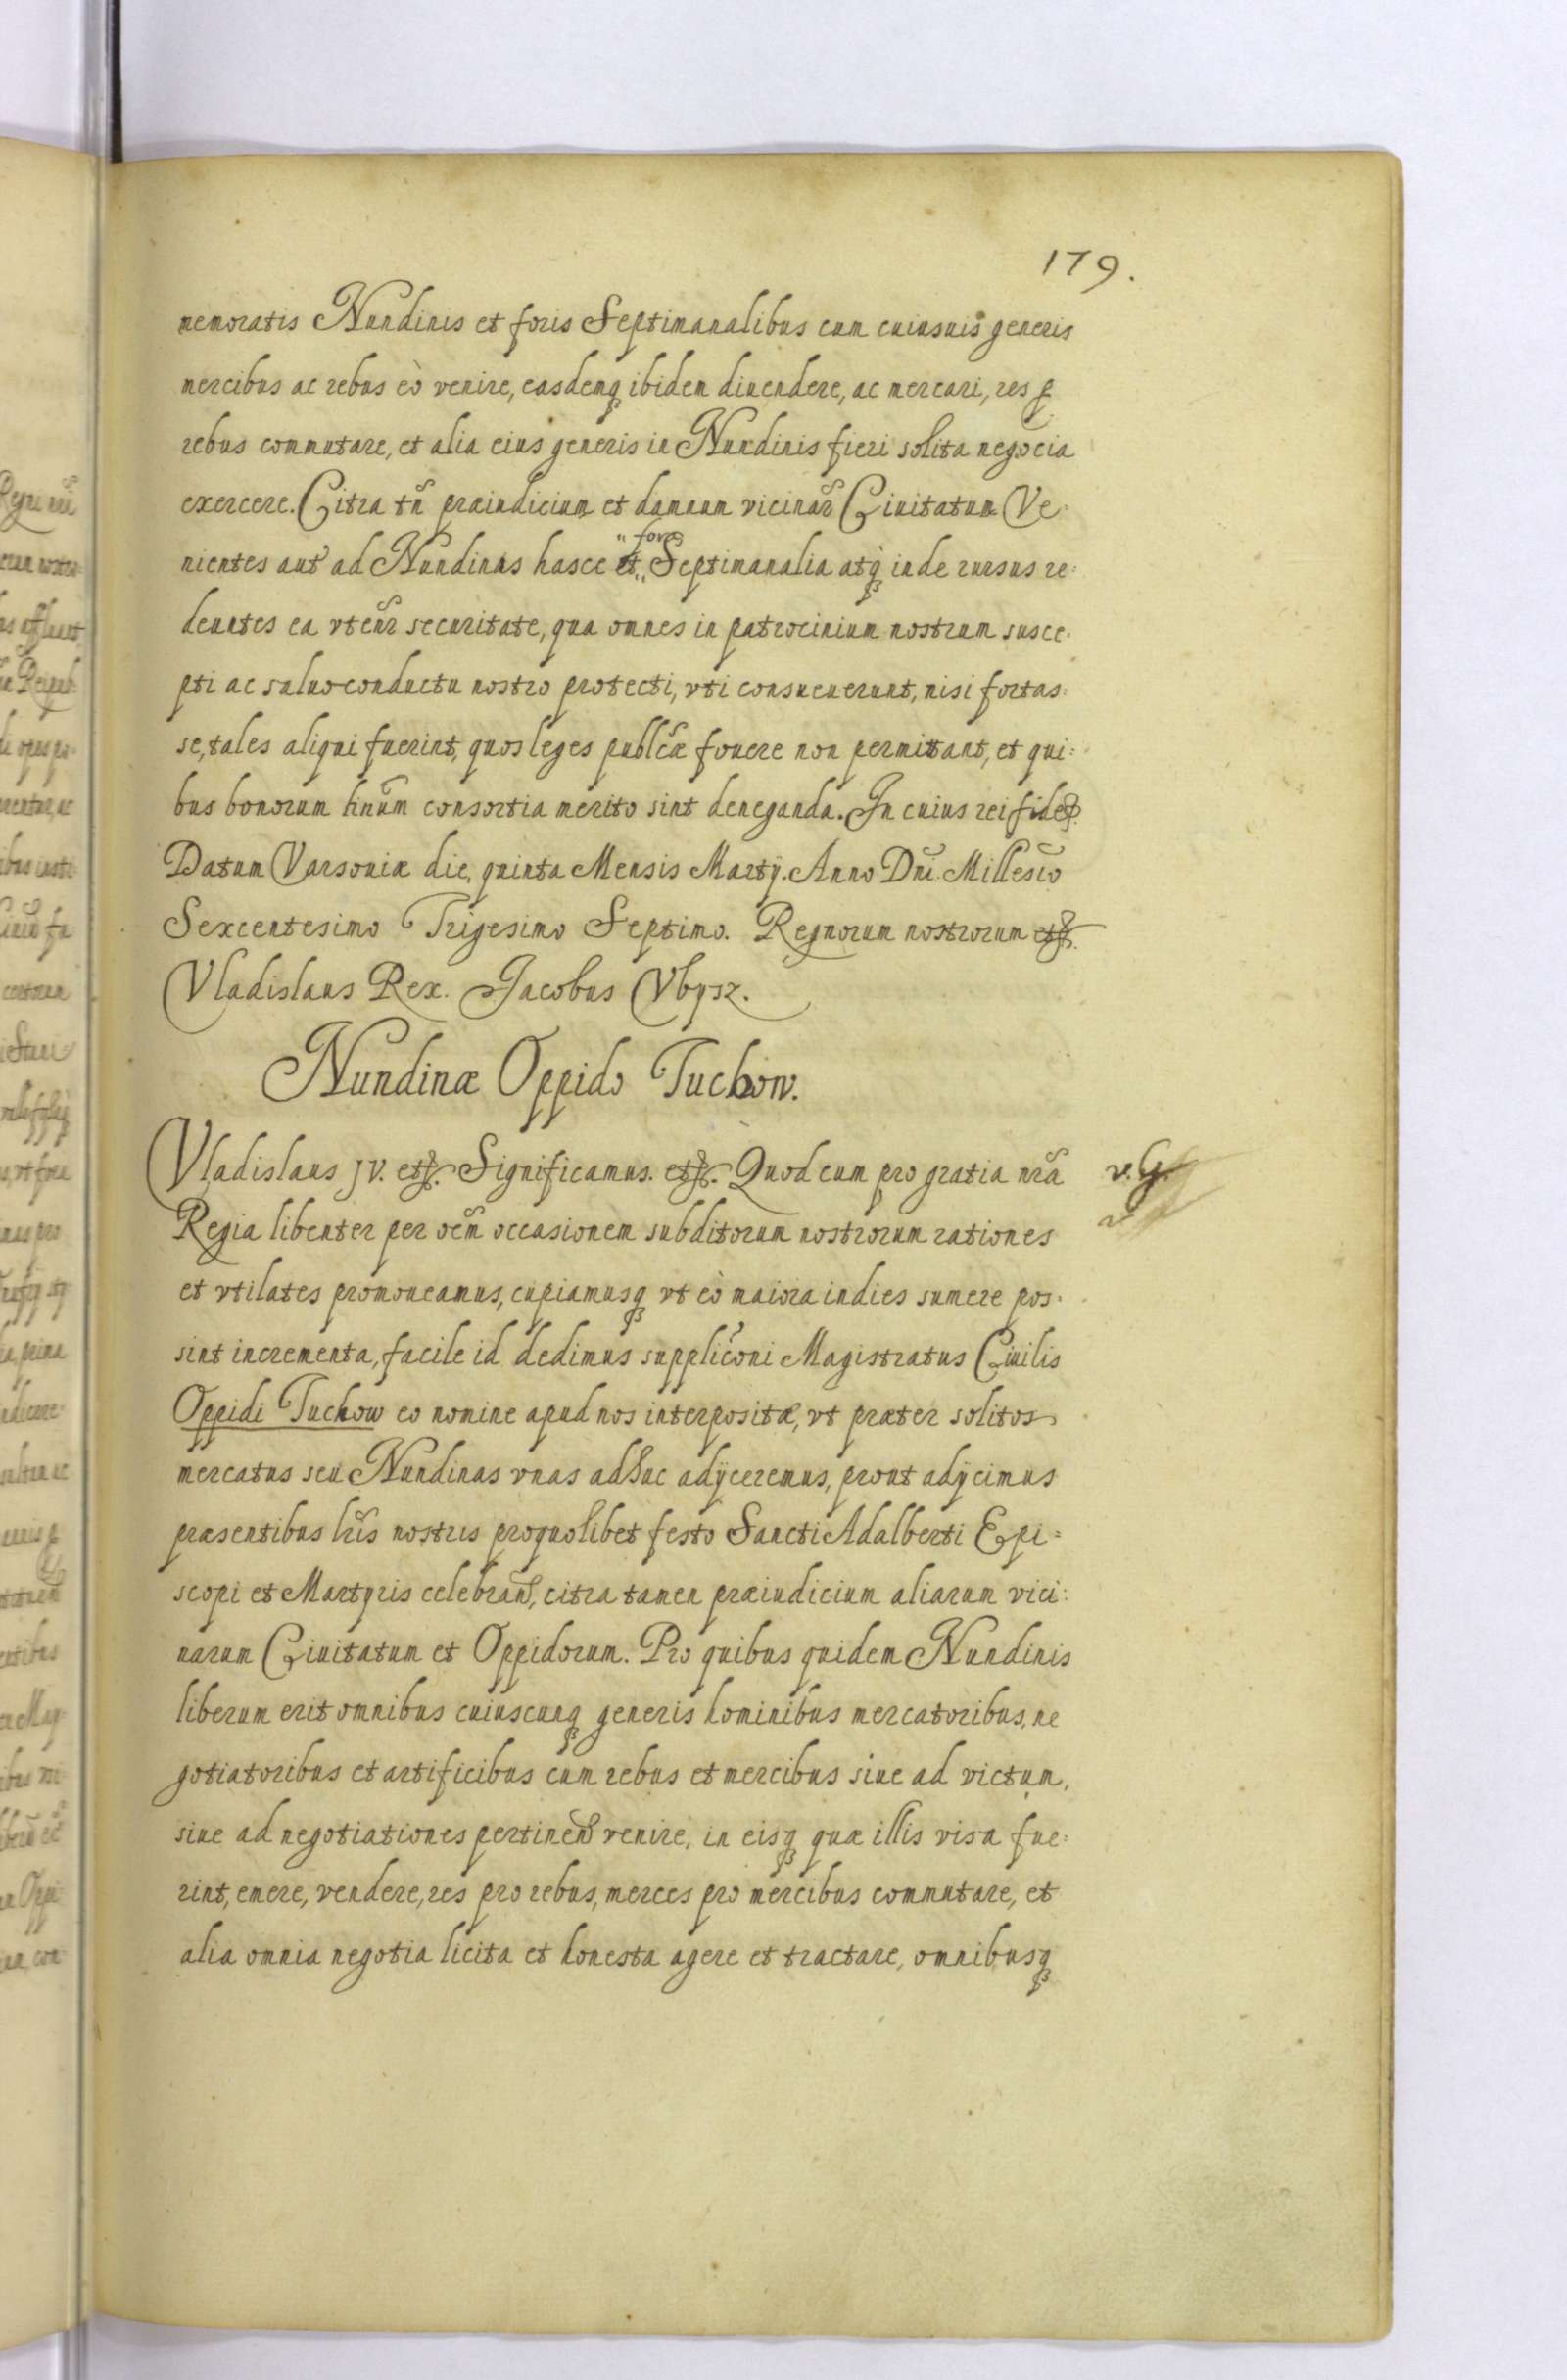 179.
memoratis Nundinis et foris Septimanalibus cum cuiusuis generis
mercibus ac rebus eò venire, easdemq3 ibidem diuendere, ac mercari, res ꝓ
rebus commutare, et alia eius generis in Nundinis fieri solita negocia
exercere. Citra tñ præiudicium et damnum vicinar̃ Ciuitatum Ve:
nientes aut̃ ad Nundinas hasce et „fora„ Septimanalia atq̀3 inde rursus re:
deuntes ea vteñr securitate, qua omnes in patrocinium nostrum susce:
pti ac saluoconductu nostro protecti, vti consueuerunt, nisi fortas:
se, tales aliqui fuerint, quos leges publc̃æ fouere non permittant, et qui:
bus bonorum hnũm consortia merito sint deneganda. In cuius rei fidẽ
Datum Varsouiæ die, quinta Mensis Martÿ. Anno Dni. Millesiõ
Sexcentesimo Trigesimo Septimo. Regnorum nostrorum etc.
Vladislaus Rex. Jacobus Vbysz.
Nundinæ Oppido Tuchow.
Vladislaus JV. etc. Significamus. etc. Quod cum pro gratia nrã
v. G.
Regia libenter per oem̃ occasionem subditorum nostrorum rationes
et vtilates promoueamus, cupiamusq3 vt eò maiora indies sumere pos:
sint incrementa, facile id dedimus supplic̃oni Magistratus Ciuilis
Oppidi Tuchow eo nomine apud nos interpositæ, vt præter solitos
mercatus seu Nundinas vnas adhuc adÿceremus, prout adÿcimus
præsentibus lr̃is nostris proquolibet festo Sancti Adalberti Epi=
scopi et Martyris celebrañ, citra tamen præiudicium aliarum vici:
narum Ciuitatum et Oppidorum. Pro quibus quidem Nundinis
liberum erit omnibus cuiuscunq3 generis hominibus mercatoribus, ne
gotiatoribus et artificibus cum rebus et mercibus siue ad victum,
siue ad negotiationes pertineñ venire, in eisq3 quæ illis visa fue:
rint, emere, vendere, res pro rebus, merces pro mercibus commutare, et
alia omnia negotia licita et honesta agere et tractare, omnibusq3